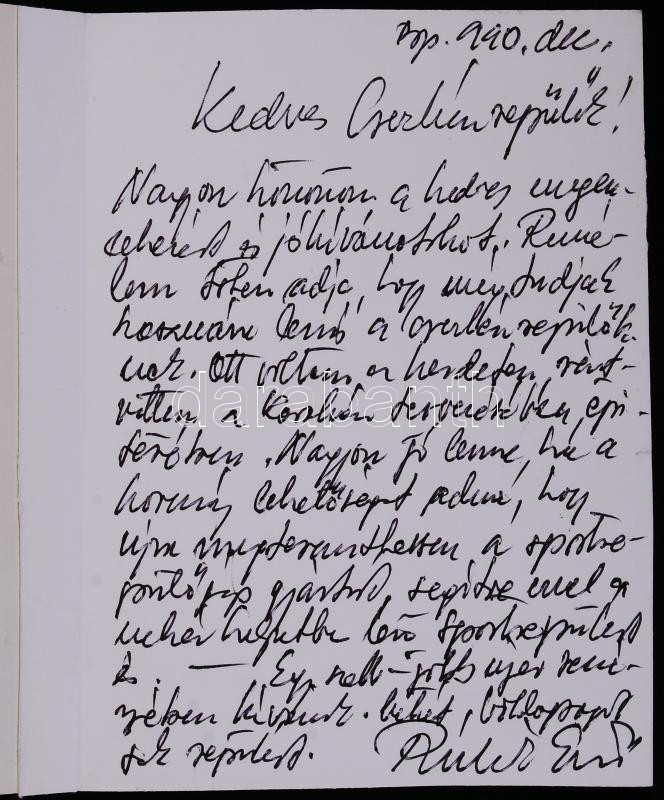 Bp. 990. dec.
Kedves Cserkészrepülők!
Nagyon köszönöm a kedves megem-
lékezést és jókívánságokat. Remé-
lem Isten adja, hogy még tudjak
hasznára lenni a cserkészrepülők-
nek. Ott voltam a kezdeten, részt-
vettem a Kárpátia tervezésében, épí-
tésében. Nagyon jó lenne, ha a
kormány lehetőséget adna, hogy
újra megteremthessem a sportre-
pülőgép gyártást, segítve ezzel a
nehéz helyzetben lévő sportrepülést
is. — Egy szebb-jobb újév remé-
nyében kívánok békét, boldogságot
sok repülést. Rubik Ernő
darabanth